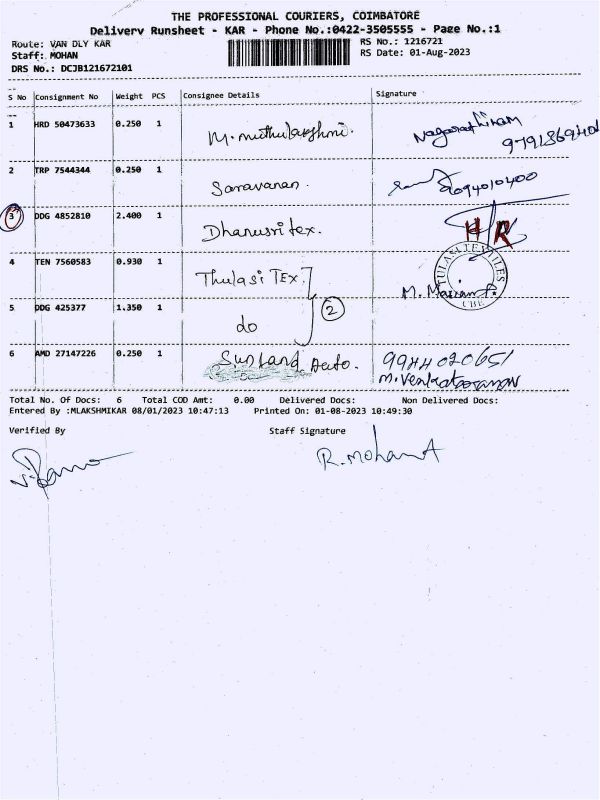 THE PROFESSIONAL COURIERS, COIMBATORE
Delivery Runsheet - KAR - Phone No.:0422-3505555 - Page No.:1
Route: VAN DLY KAR RS No.: 1216721
Staff: MOHAN RS Date: 01-Aug-2023
DRS No.: DCJB121672101
S No Consignment No Weight PCS Consignee Details Signature
1 HRD 50473633 0.250 1 M. muthulakshmi.
2 TRP 7544344 0.250 1 Saravanan. 9094010400
3 DDG 4852810 2.400 1 Dhanusri tex. HR
4 TEN 7560583 0.930 1 Thulasi TEX. M. Mariam
TULASI TEXTILES CBE
5 DDG 425377 1.350 1 do 2
6 AMD 27147226 0.250 1 Sunland Auto. 9944020651
M. Venkateswaran
Total No. Of Docs: 6 Total COD Amt: 0.00 Delivered Docs: Non Delivered Docs:
Entered By :MLAKSHMIKAR 08/01/2023 10:47:13 Printed On: 01-08-2023 10:49:30
Verified By Staff Signature
R. Mohan